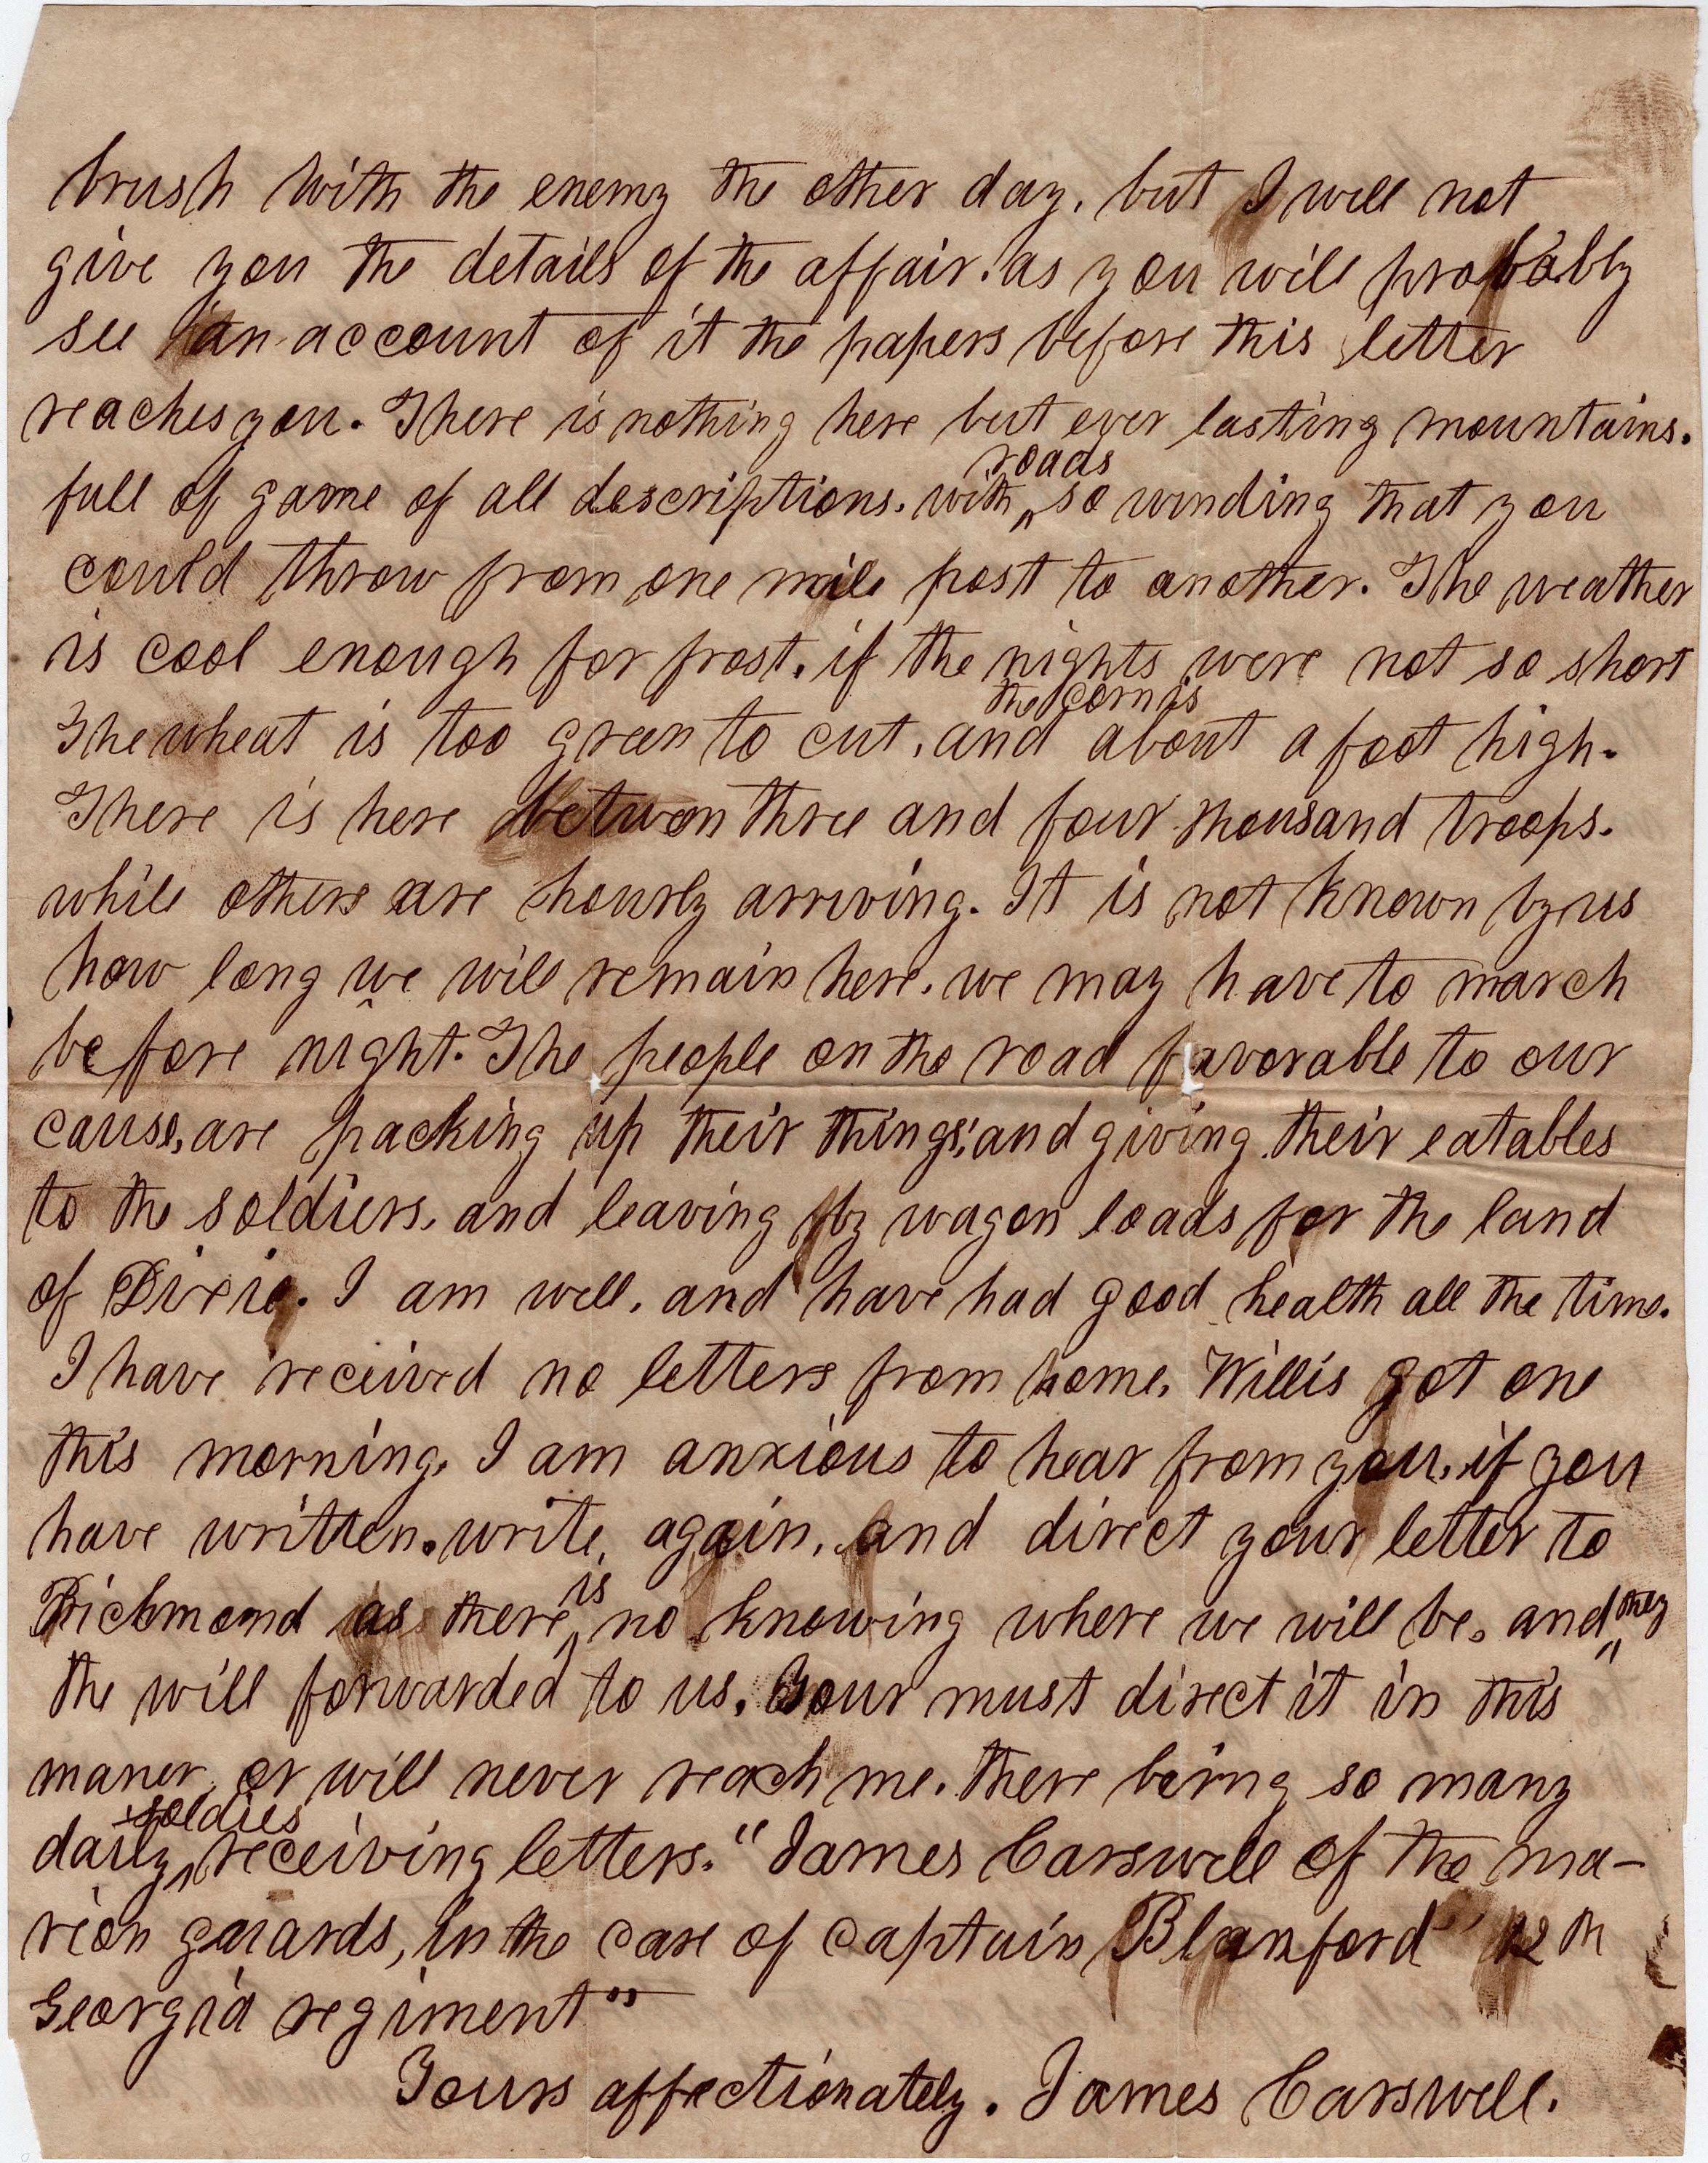 brush with the enemy the other day, but I will not
give you the details of the affair, as you will probably
see an account of it the papers before this letter
reaches you. There is nothing here but ever lasting mountains.
full of game of all descriptions. with roads so winding that you
could throw from one mile post to another. The weather
is cool enough for frost, if the nights were not so short
The wheat is too green to cut, and the corn is about a foot high.
There is here between three and four thousand troops.
while others are hourly arriving. It is not known by us
how long we will remain here, we may have to march
before night. The people on the road favorable to our
cause, are packing up their things, and giving their eatables
to the soldiers, and leaving by wagon loads for the land
of Dixie. I am well, and have had good health all the time.
I have received no letters from home, Willis got one
this morning, I am anxious to hear from you, if you
have written. write, again, and direct your letter to
Richmond as there is no knowing where we will be, and they
the will forwarded to us. Your must direct it in this
maner, or will never reach me, there being so many
soldies
daily receiving letters. "James Carswell of the ma-
rion guards, in the care of captain Blanford" 12th
Georgia regiment"
Yours affectionately. James Carswell.